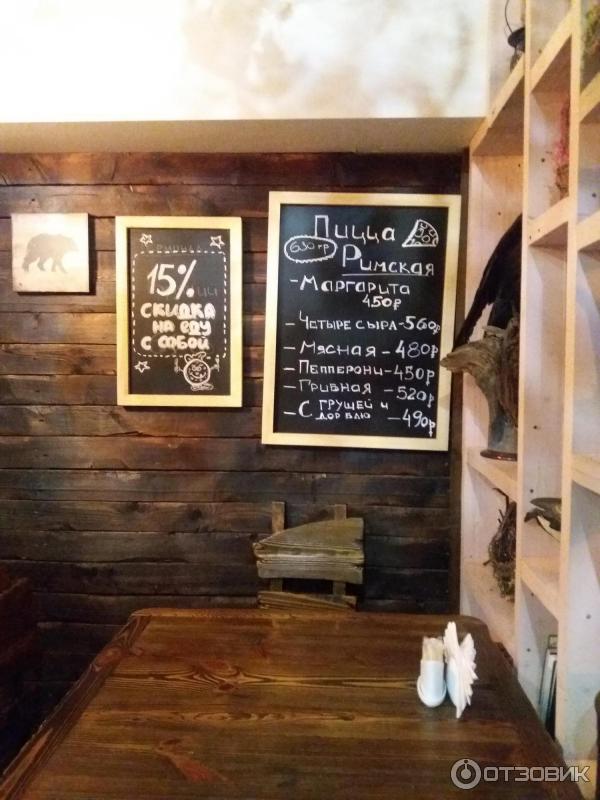 15%
СКИДКА
НА ЕДУ
С СОБОЙ
ПИЦЦА
630 гр
РИМСКАЯ
- МАРГАРИТА
450р
- ЧЕТЫРЕ СЫРА - 560р
- МЯСНАЯ - 480р
- ПЕППЕРОНИ - 450р
- ГРИБНАЯ - 520р
- С ГРУШЕЙ И
ДОР БЛЮ - 490р
ОТЗОВИК